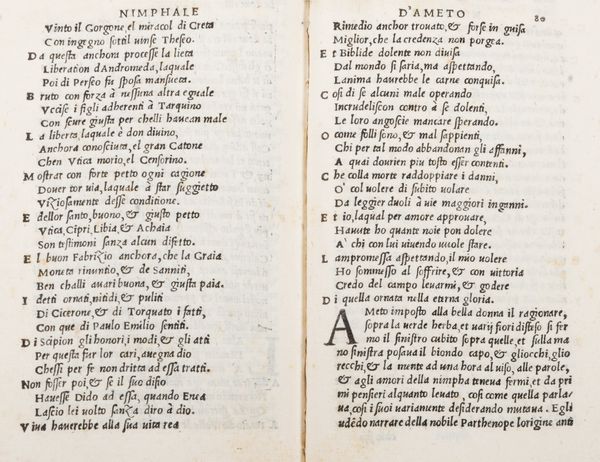 NIMPHALE
Vinto il Gorgone, el miracol di Creta
Con ingegno sottil uinse Theseo.
Da questa anchora processe la lieta
Liberation d'Andromeda, laquale
Poi di Perseo fu sposa mansueta.
Bruto con forza à nissuna altra eguale
Vccise i figli adherenti à Tarquino
Con scure giusta per chelli hauean male
La liberta, laquale è don diuino,
Anchora conosciuta, el gran Catone
Chen Vtica morio, el Censorino.
Mostrar con forte petto ogni cagione
Douer tor uia, laquale à star suggietto
Viziosamente desse conditione.
E dellor santo, buono, & giusto petto
Vtica, Cipri, Libia, & Achaia
Son testimoni sanza alcun difetto.
El buon Fabrizio anchora, che la Graia
Moneta rinuntio, & de Sanniti,
Ben challi auari buona, & giusta paia.
I detti ornati, nitidi, & puliti
Di Cicerone, & di Torquato i fatti,
Con que di Paulo Emilio sentiti.
Di Scipion gli honori, i modi, & gli atti
Per questa fur lor cari, auegna dio
Chessi per fe non dritta ad essa tratti.
Non fosser poi, & se il suo disio
Hauesse Dido ad essa, quando Enea
Lascio lei uolto sanza diro à dio.
Viua hauerebbe alla sua uita rea
D'AMETO 80
Rimedio anchor trouato, & forse in guisa
Miglior, che la credenza non porgea.
Et Biblide dolente non diuisa
Dal mondo si saria, ma aspettando,
Lanima haurebbe le carne conquisa.
Cosi de se alcuni male operando
Incrudeliscon contro à se dolenti,
Le loro angoscie mancare sperando.
O come folli sono, & mal sappienti,
Chi per tal modo abbandonan gli affanni,
A quai dourien piu tosto esser contenti.
Che colla morte raddoppiare i danni,
O' col uolere di subito uolare
Da leggier duoli à uie maggiori inganni.
Et io, laqual per amore approuare,
Hauute ho quante noie pon dolere
A' chi con lui uiuendo uuole stare.
Lampromessa aspettando, il mio uolere
Ho sommesso al soffrire, & con uittoria
Credo del campo leuarmi, & godere
Di quella ornata nella eterna gloria.
AMeto imposto alla bella donna il ragionare,
sopra la uerde herba, et uarij fiori disteso si fer
mo il sinistro cubito sopra quelle, et sulla ma
no sinistra posaua il biondo capo, & gliocchi, glio
recchi, & la mente ad una hora al uiso, alle parole,
& agli amori della nimpha teneua fermi, et da pri
mi pensieri alquanto leuato, cosi come quella parla=
ua, cosi i suoi uariamente desiderando mutaua. Egli
udẽdo narrare della nobile Parthenope lorigine anti